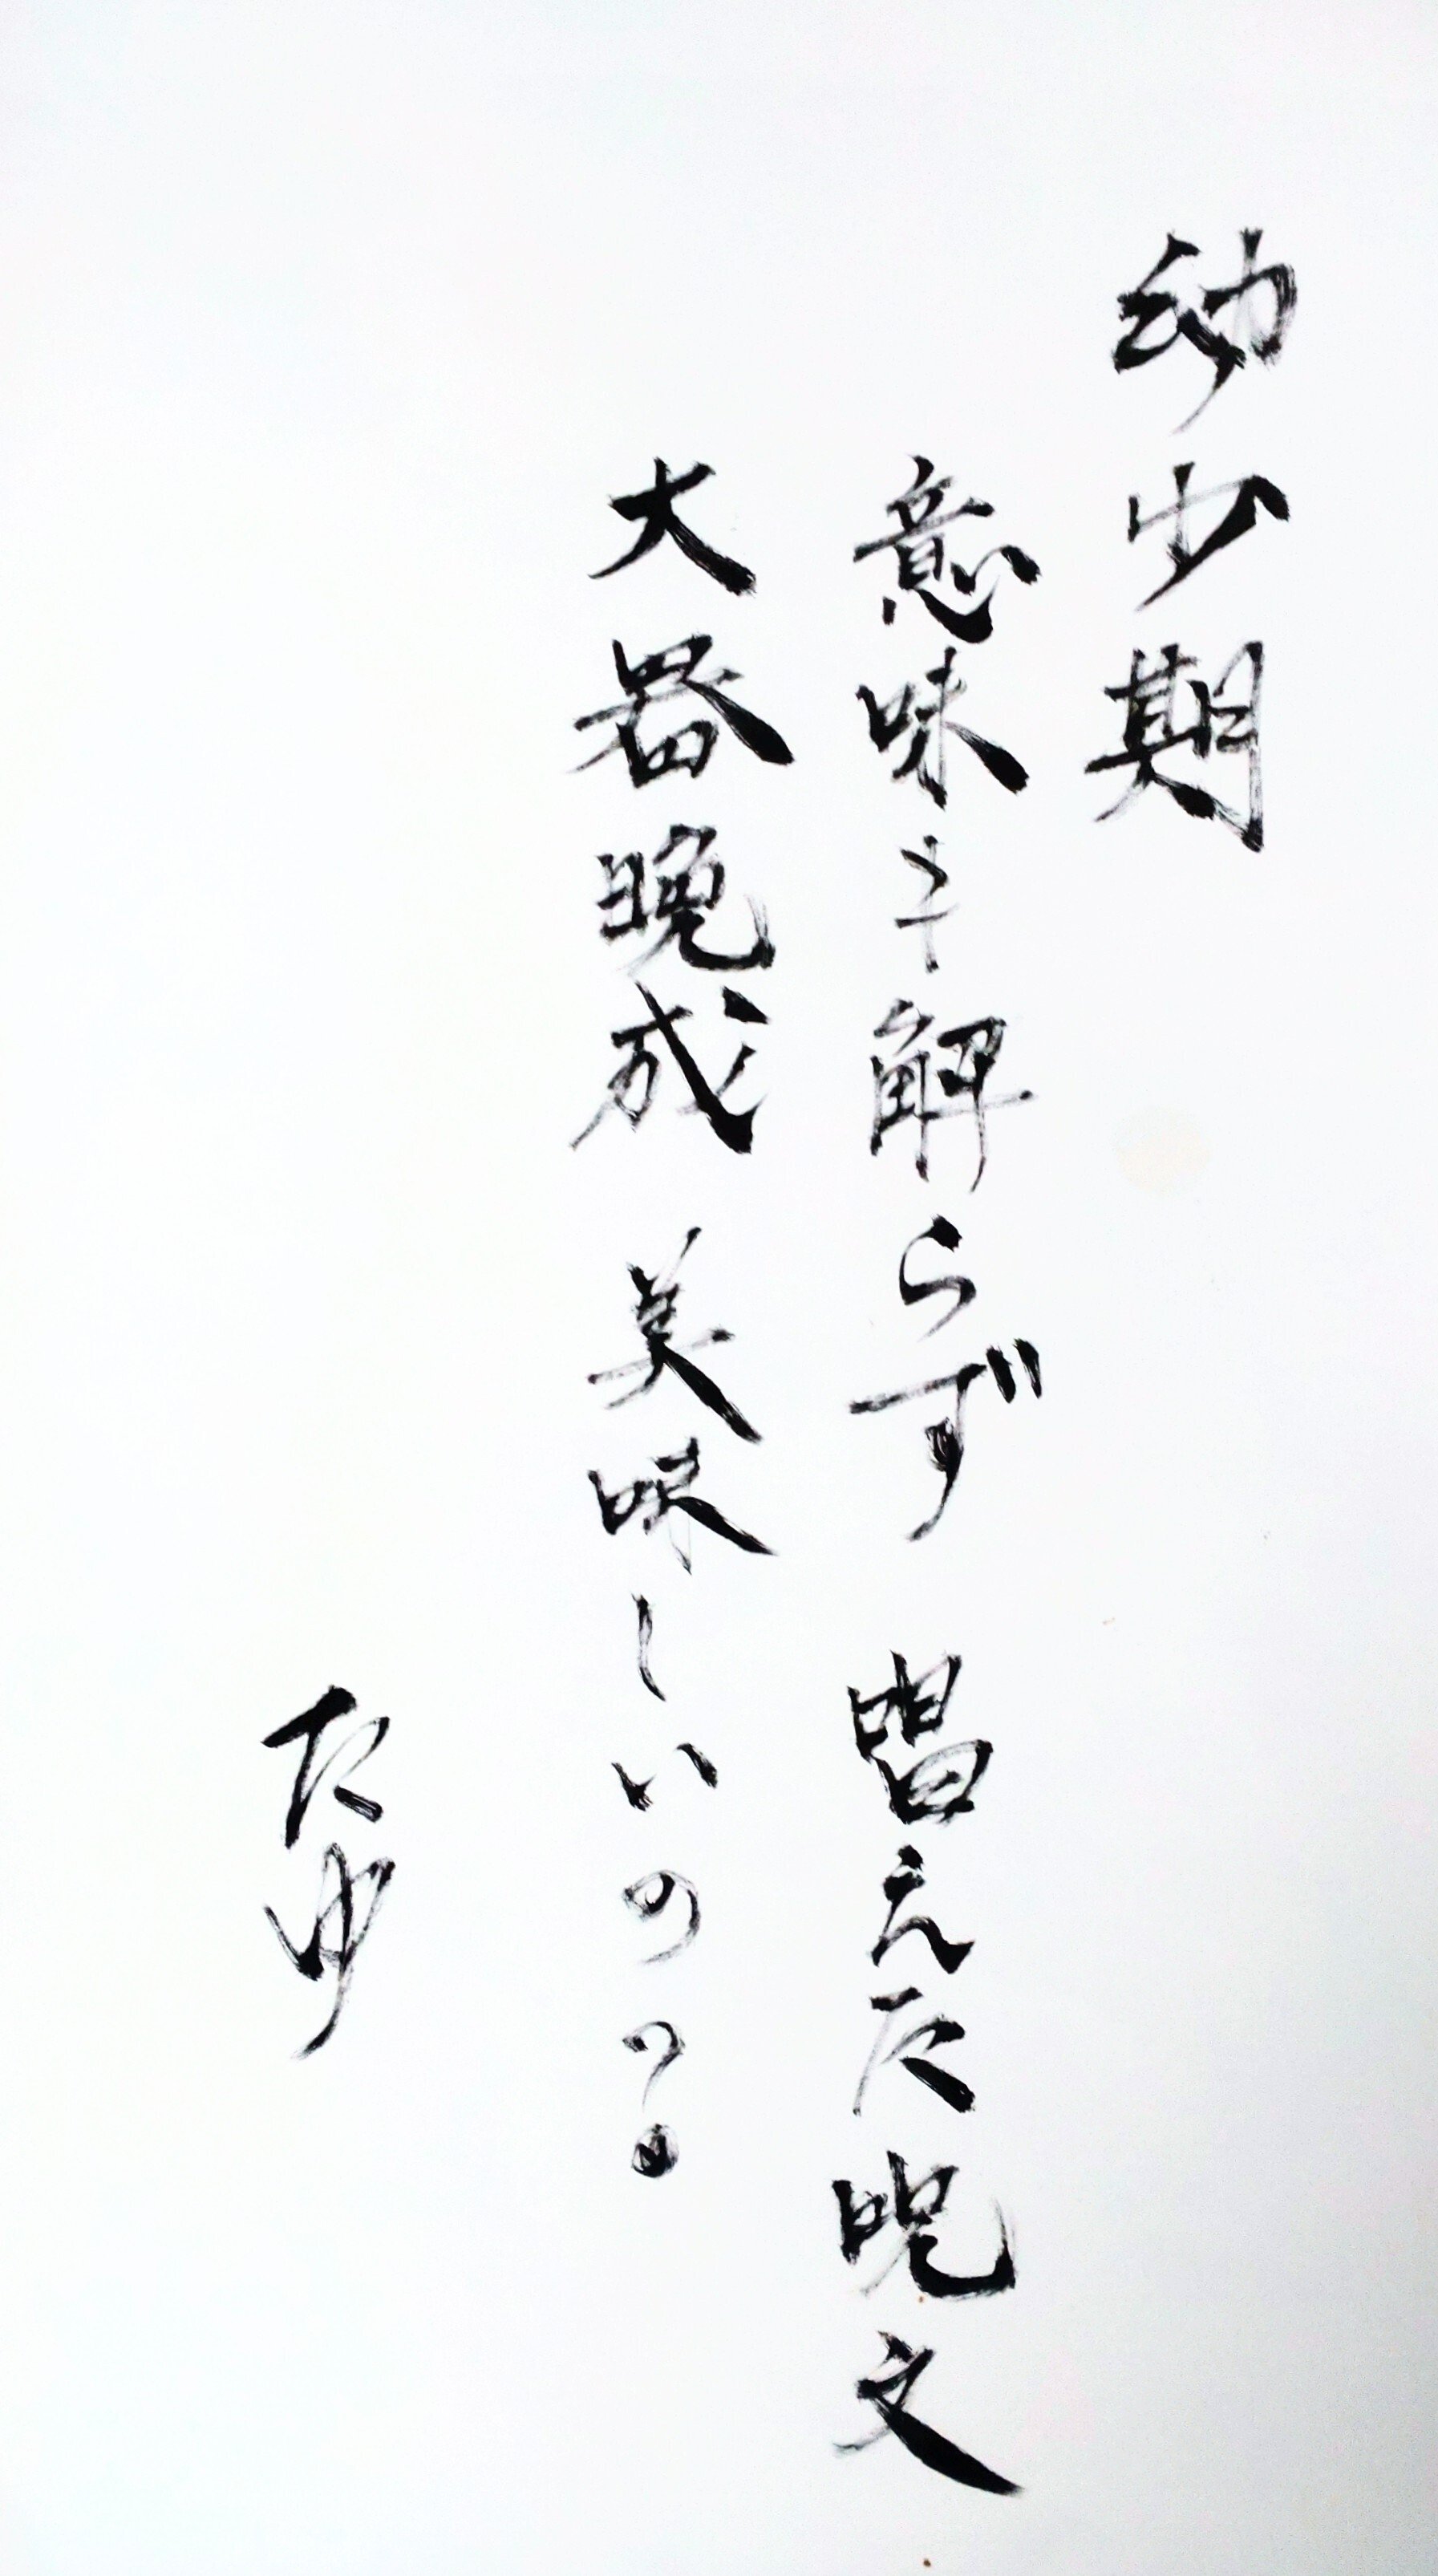 幼少期
意味も解らず 唱えた呪文
大器晩成 美味しいの?
たゆ